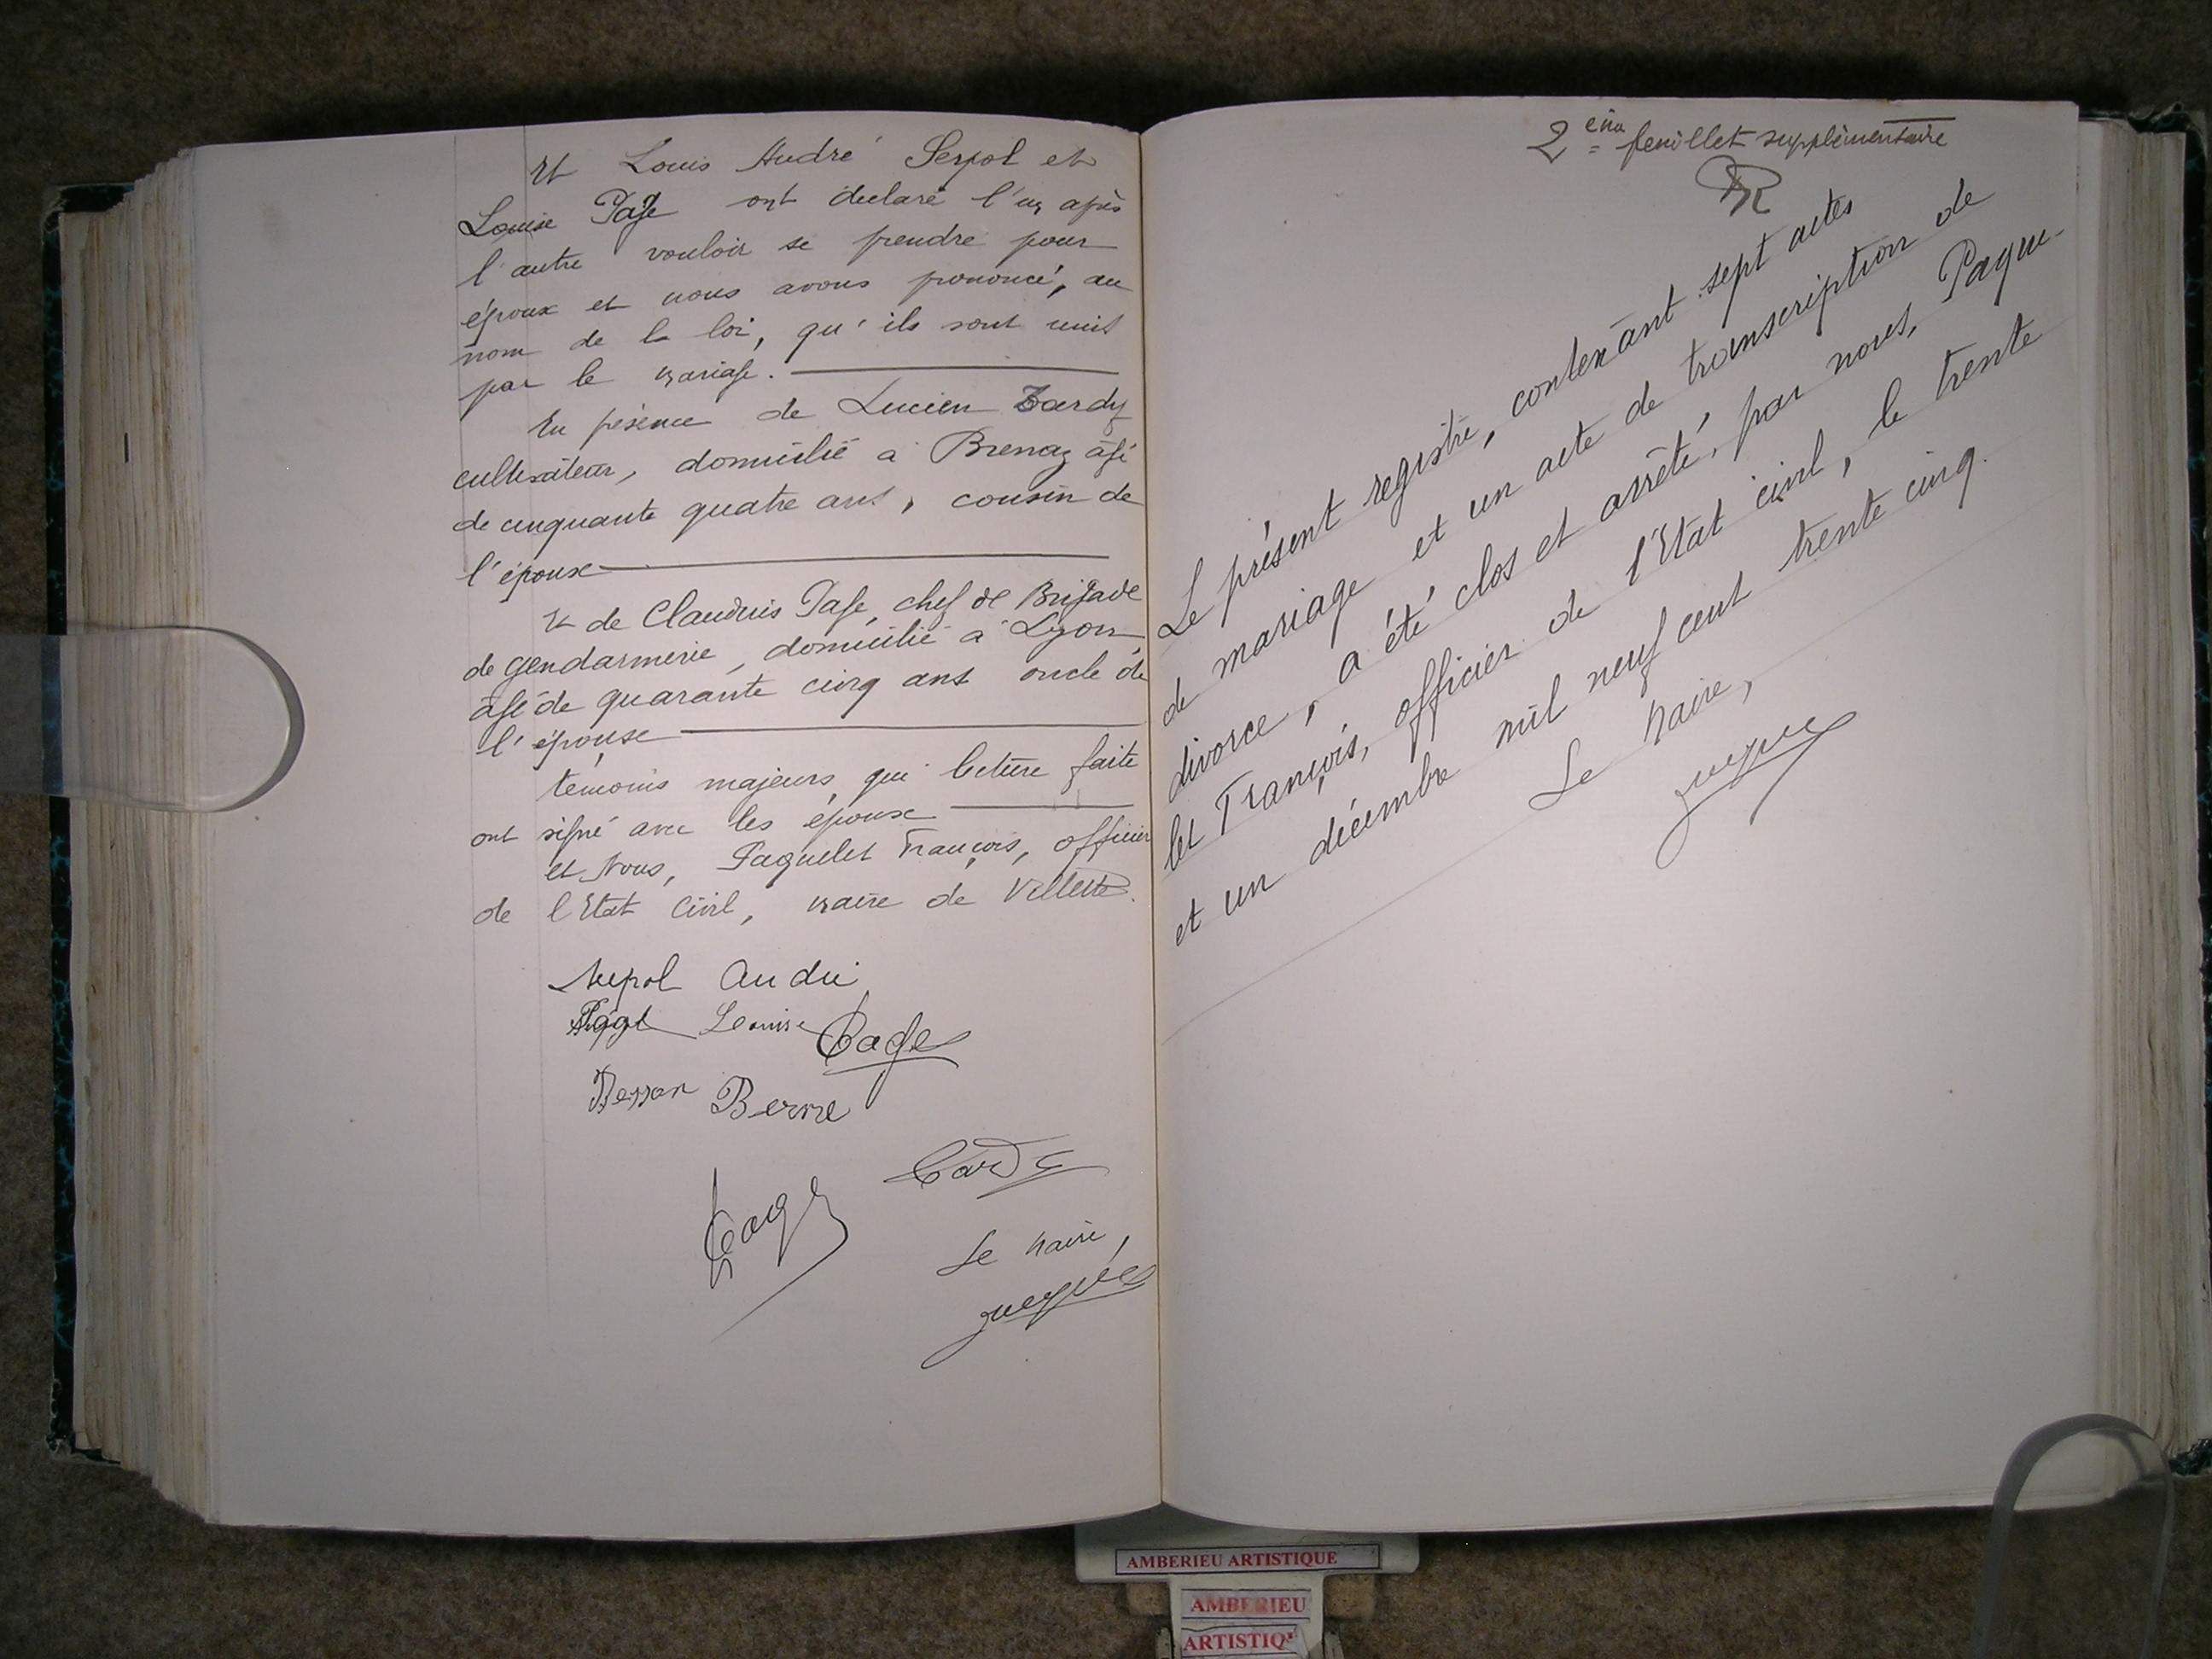 Et Louis André Serpol et
Louise Page ont déclaré l'un après
l'autre vouloir se prendre pour
époux et nous avons prononcé, au
nom de la loi, qu'ils sont unis
par le mariage.
En présence de Lucien Tardy
cultivateur, domicilié à Brenaz âgé
de cinquante quatre ans, cousin de
l'épouse
Et de Claudius Page, chef de Brigade
de gendarmerie, domicilié à Lyon,
âgé de quarante cinq ans oncle de
l'épouse
témoins majeurs, qui lecture faite
ont signé avec les époux
et Nous, Paquelet François, officier
de l'Etat Civil, maire de Villette.
Serpol André
Louise Page
Besson Berne
Tardy
Page
Le Maire,
2ème feuillet supplémentaire
Le présent registre, contenant sept actes
de mariage et un acte de transcription de
divorce, a été clos et arrêté, par nous, Paque-
let François, officier de l'Etat civil, le trente
et un décembre mil neuf cent trente cinq.
Le Maire,
AMBERIEU ARTISTIQUE
AMBERIEU
ARTISTIQ